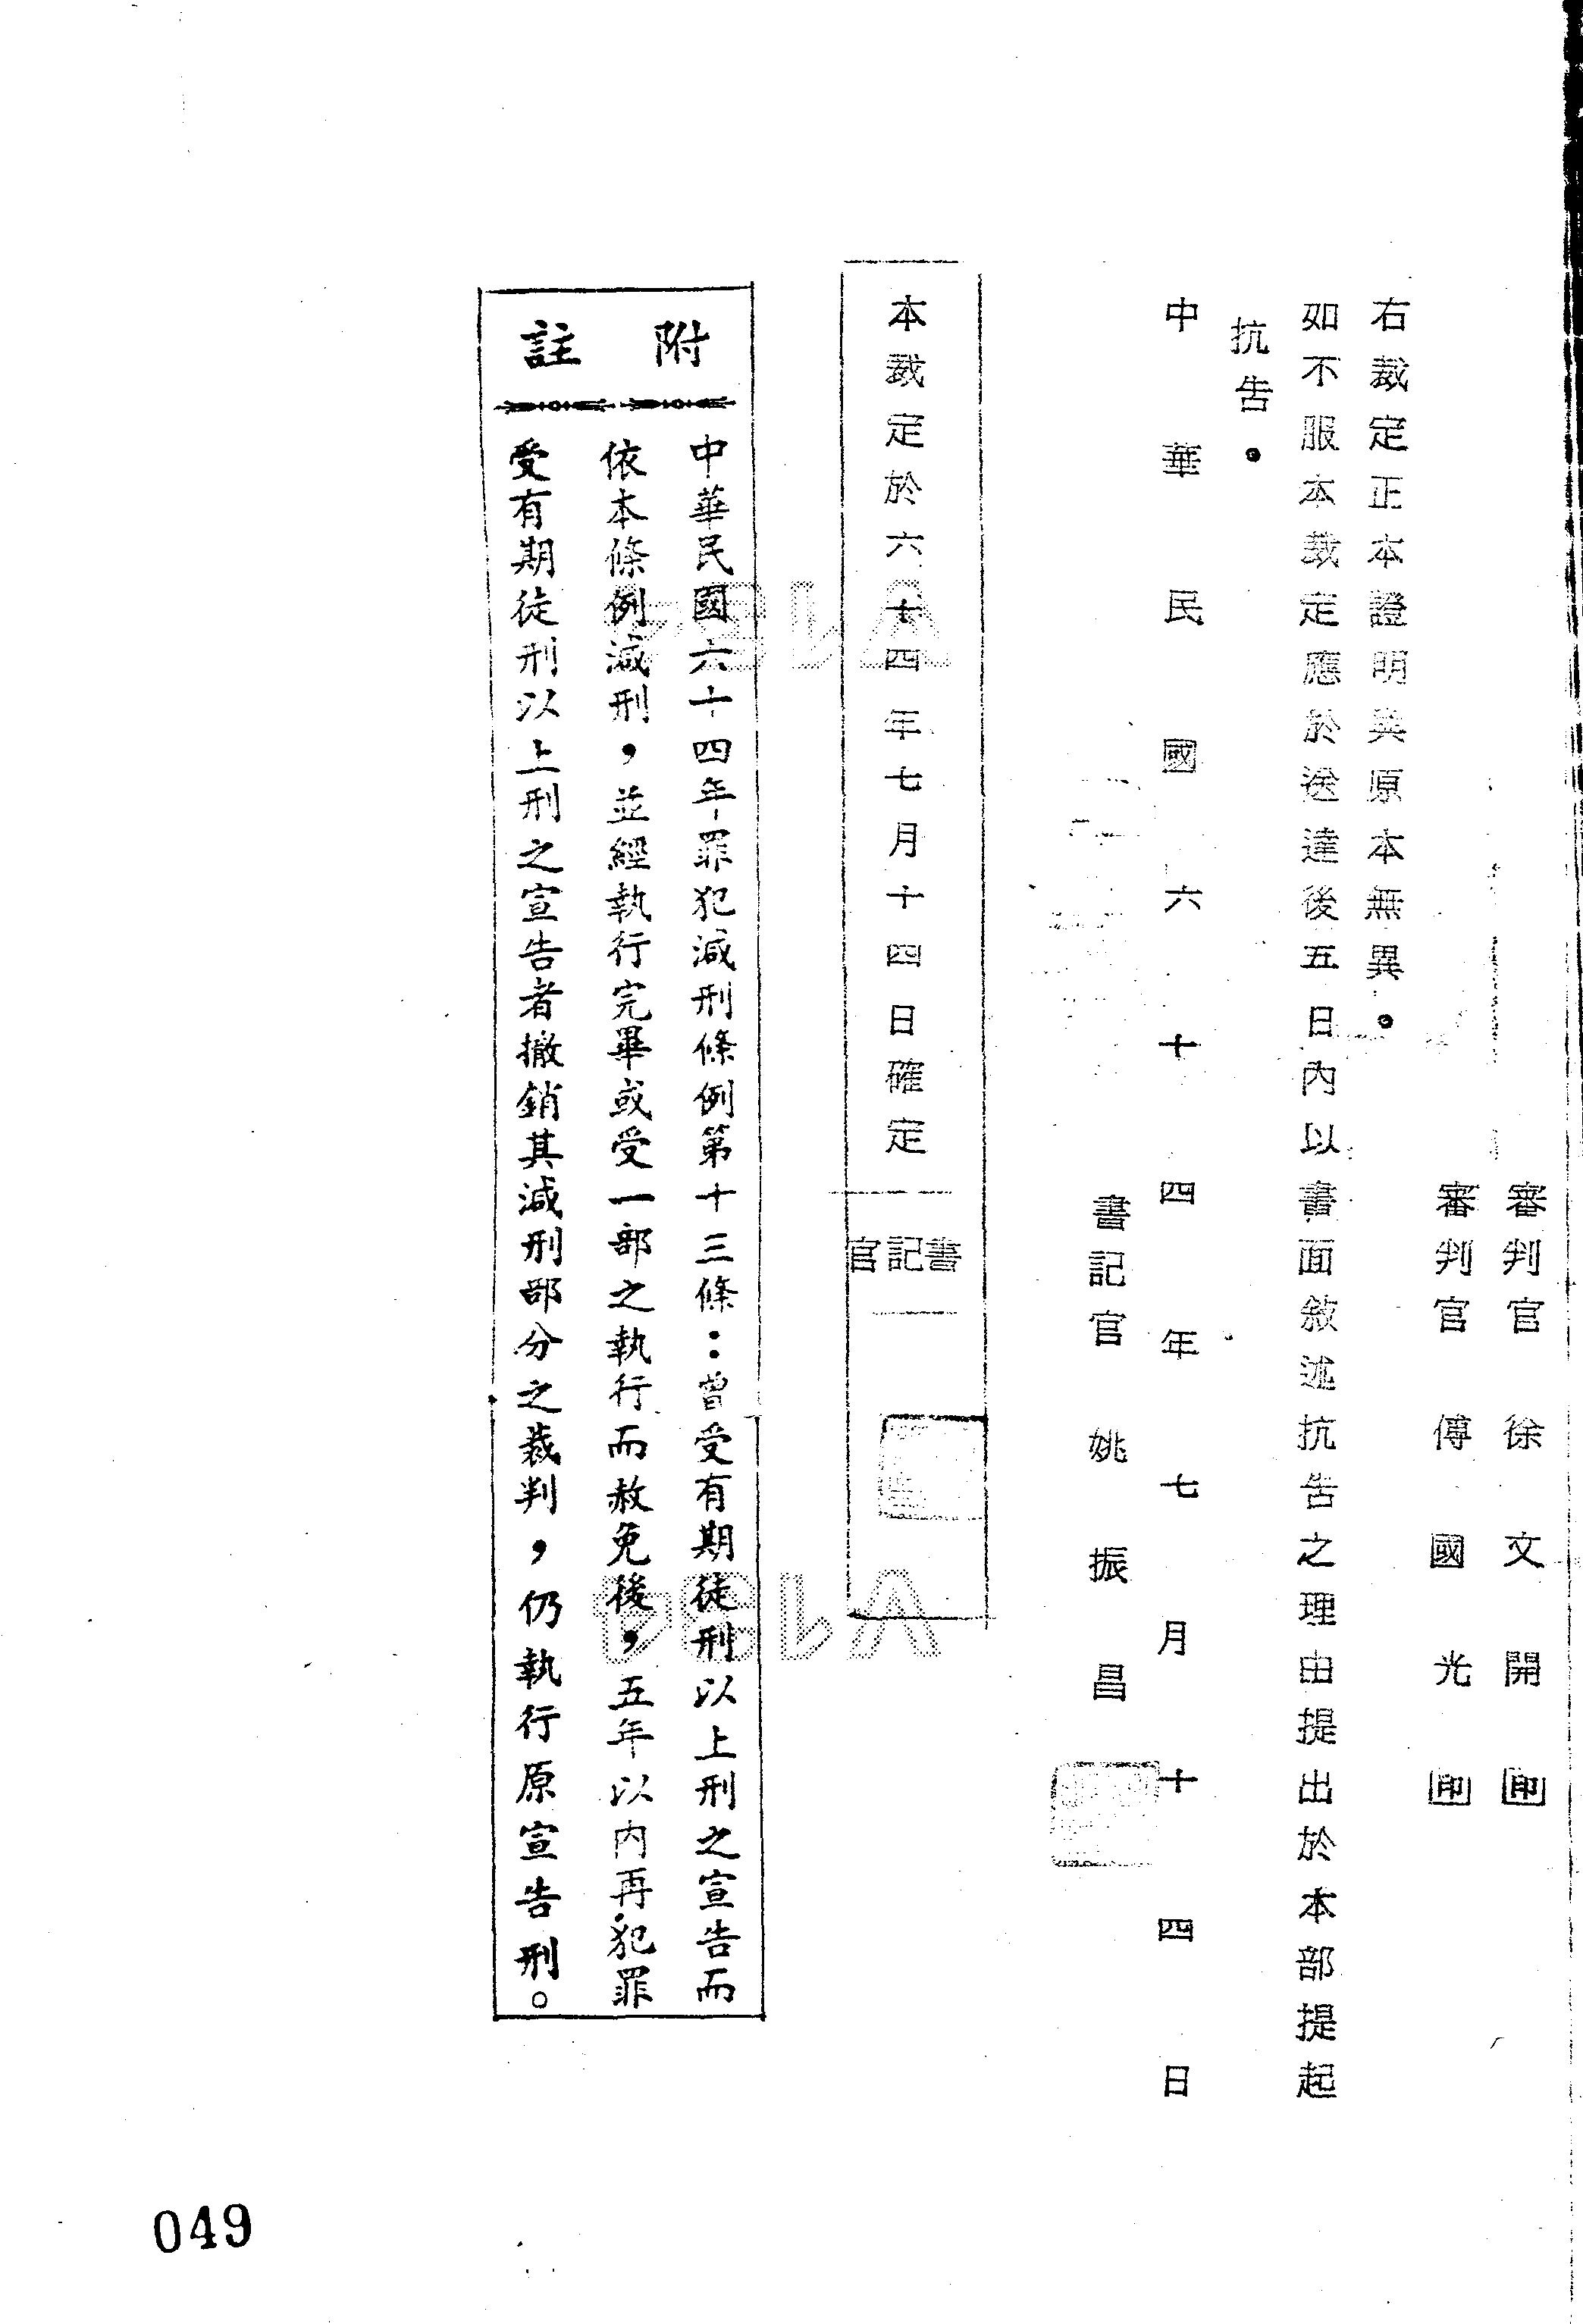 審判官　徐文開　印
審判官　傅國光　印
右裁定正本證明與原本無異。
如不服本裁定應於送達後五日內以書面敘述抗告之理由提出於本部提起
抗告。
中華民國六十四年七月十四日
書記官　姚振昌
本裁定於六十四年七月十四日確定
書記官
附註
中華民國六十四年罪犯減刑條例第十三條：曾受有期徒刑以上刑之宣告而
依本條例減刑，並經執行完畢或受一部之執行而赦免後，五年以內再犯罪
受有期徒刑以上刑之宣告者撤銷其減刑部分之裁判，仍執行原宣告刑。
049